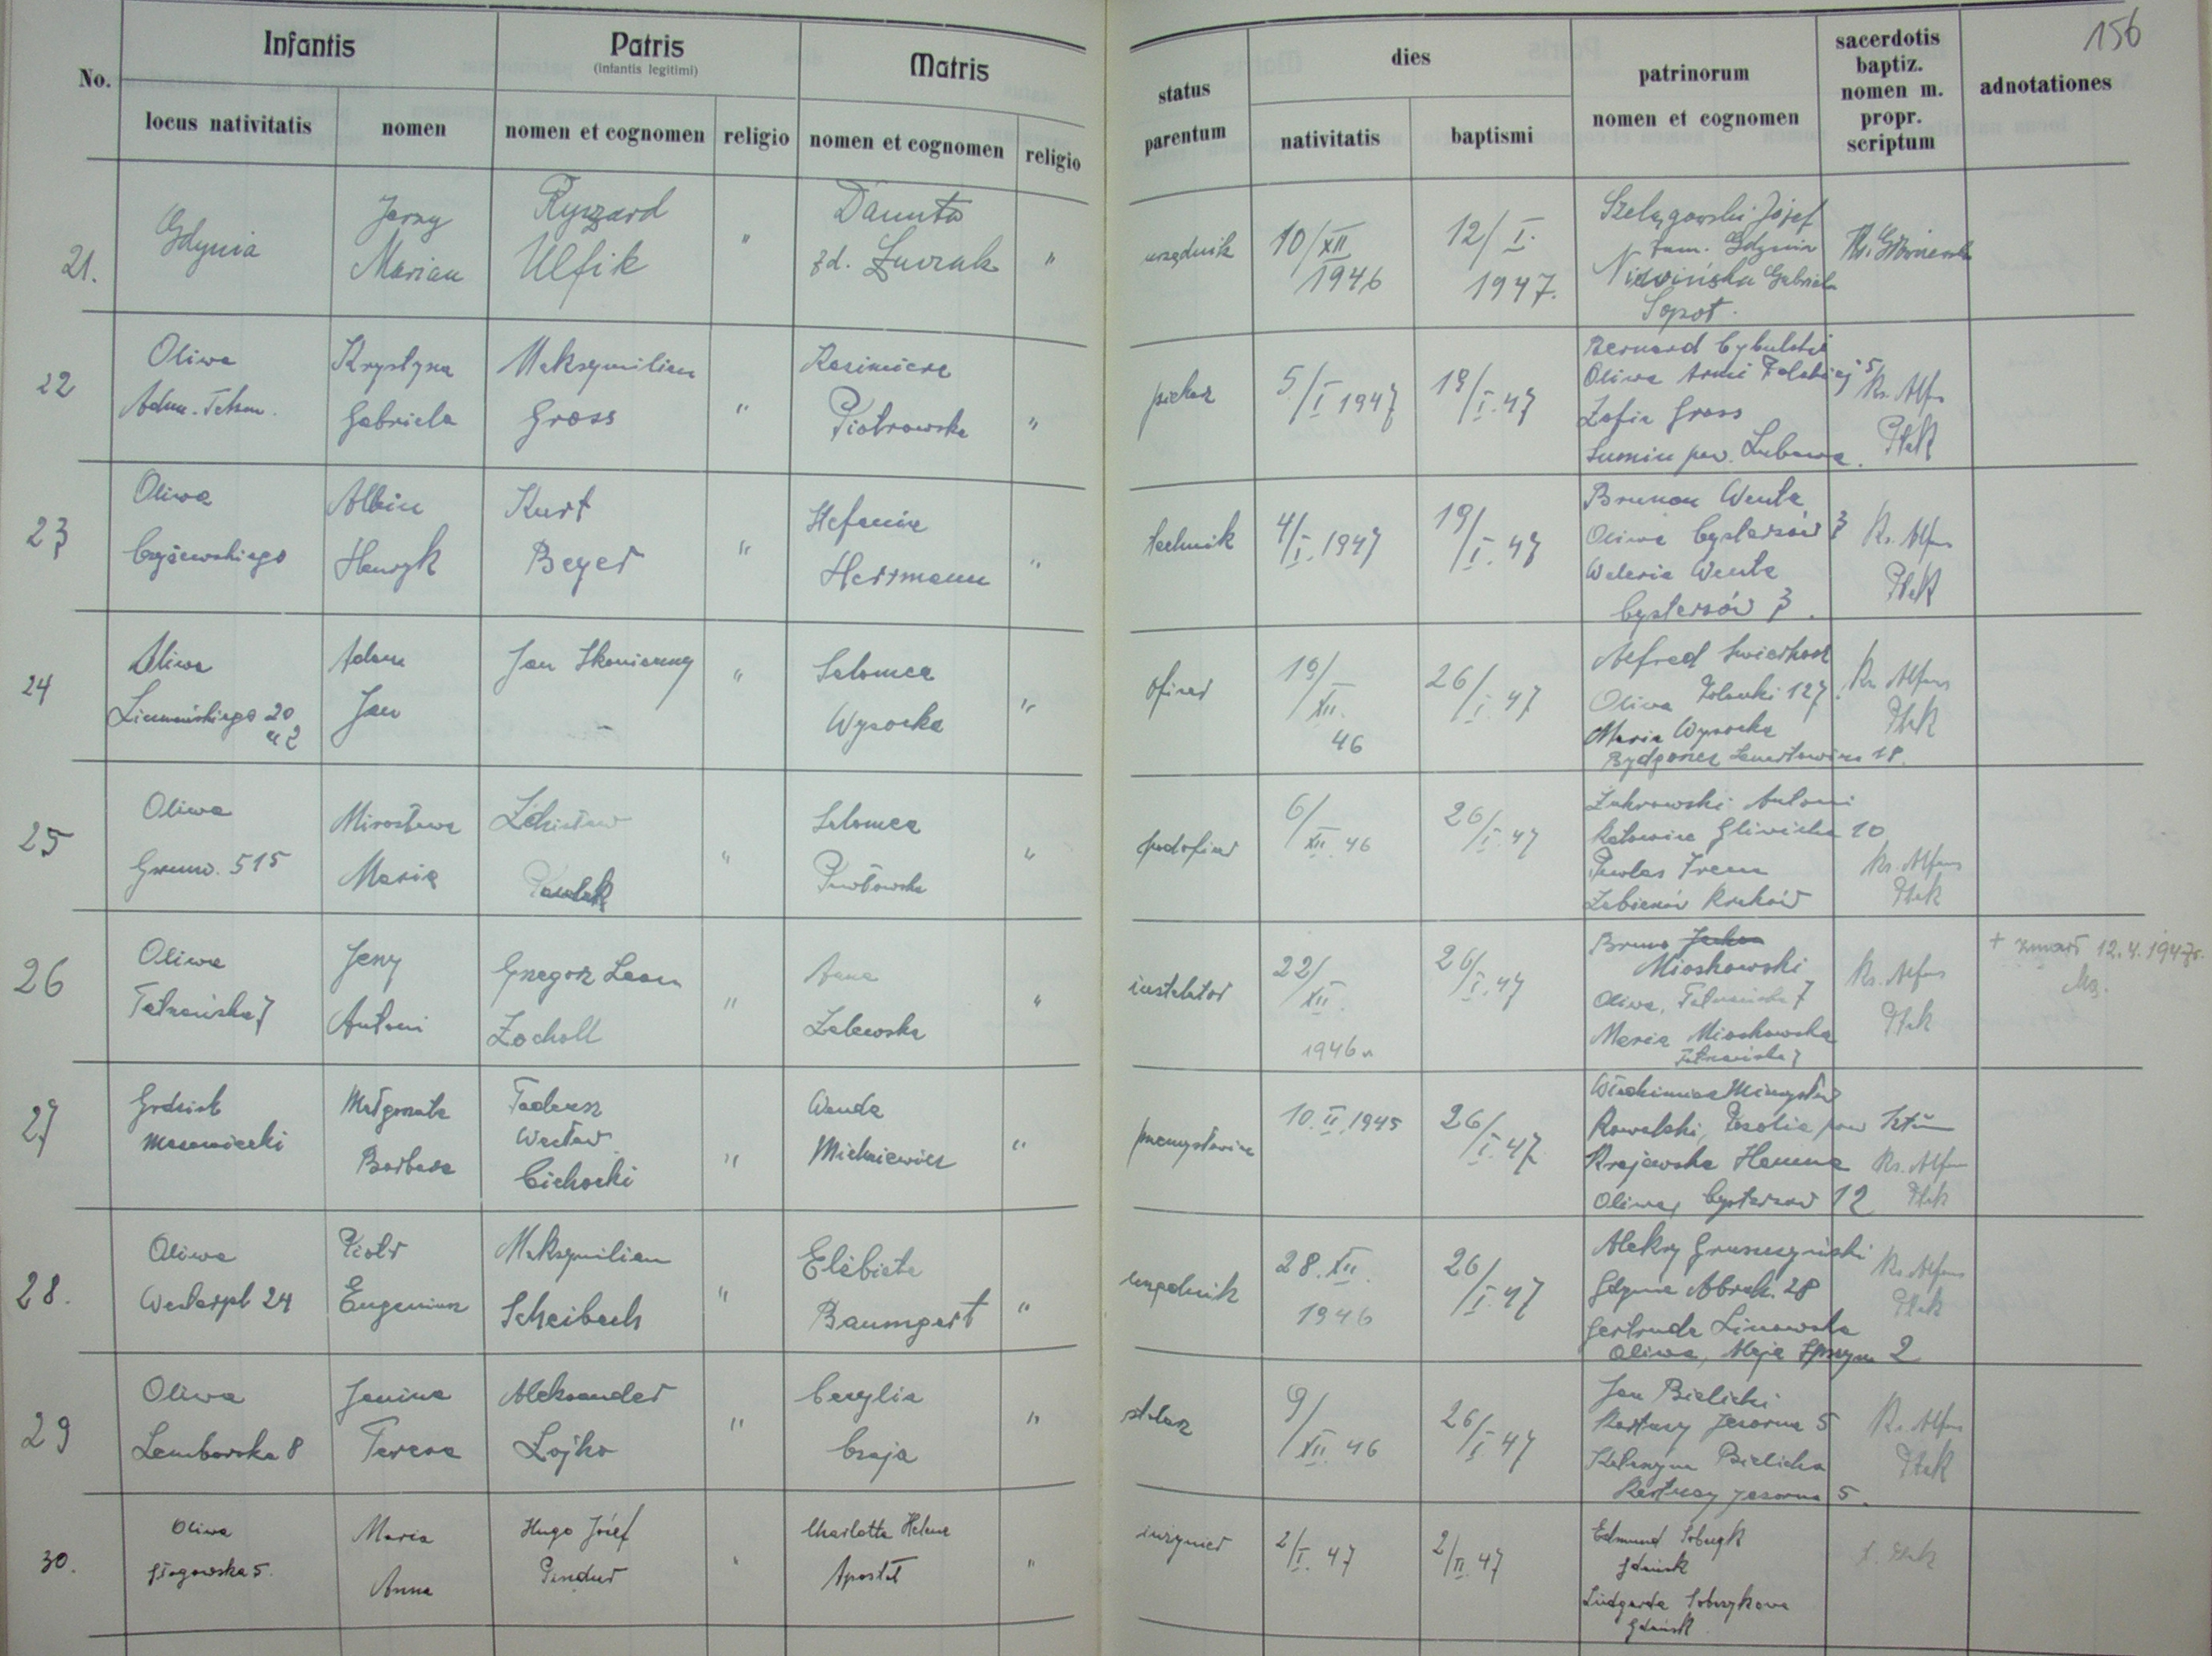 156
No.
Infantis
Patris
(infantis legitimi)
Matris
status parentum
dies
patrinorum
nomen et cognomen
sacerdotis
baptiz.
nomen m.
propr.
scriptum
adnotationes
locus nativitatis
nomen
nomen et cognomen
religio
nomen et cognomen
religio
nativitatis
baptismi
21.
Gdynia
Jerzy
Marian
Ryszard
Ulfik
"
Danuta
zd. Żurak
"
urzędnik
10/XII
1946
12/I.
1947.
Szelągowski Józef
zam. Gdynia
Niewińska Gabriela
Sopot.
22
Oliwa
Krystyna
Gabriela
Maksymilian
Gross
"
Kazimiera
Piotrowska
"
piekarz
5/I 1947
19/I.47
Bernard Cybulski
Oliwa Armii Polskiej 5
Zofia Gross
pow. Lubawa.
Ks. Alfons
Ptak
23
Oliwa
Czyżewskiego
Albin
Henryk
Kurt
Beyer
"
Stefania
Herrmann
"
technik
4/I.1947
19/I.47
Brunon Wenta
Oliwa Cystersów 3
Waleria Wenta
Cystersów 3.
Ks. Alfons
Ptak
24
Oliwa
Adam
Jan
Jan Skonieczny
"
Salomea
Wysocka
"
oficer
19/XII.
46
26/I.47
Alfred
Oliwa Polanki 127.
Maria Wysocka
Bydgoszcz Lenartowicza 18.
Ks. Alfons
Ptak
25
Oliwa
Grunw. 515
Mirosława
Maria
Zdzisław
"
Salomea
Pawłowska
"
podoficer
6/XII.46
26/I.47
Żukrowski Antoni
Katowice Gliwicka 10
Irena
Kraków
Ks. Alfons
Ptak
26
Oliwa
Tatrzańska 7
Jerzy
Antoni
Grzegorz Leon
Zocholl
"
Anna
Zalewska
"
instalator
22/XII.
1946 r
26/I.47
Bruno
Mioskowski
Oliwa, Tatrzańska 7
Maria Mioskowska
Tatrzańska 7
Ks. Alfons
Ptak
+ zmarł 12.4.1947r.
27
Grodzisk
Mazowiecki
Małgorzata
Barbara
Tadeusz
Wacław
Cichocki
"
Wanda
Michniewicz
"
przemysłowiec
10.II.1945
26/I.47
Włodzimierz Mieczysław
Kowalski, pow Sztum
Krajewska Hanna
Oliwa, Cystersów 12
Ks. Alfons
Ptak
28.
Oliwa
Westerpl 24
Piotr
Eugeniusz
Maksymilian
Scheibach
"
Elżbieta
Baumgart
"
urzędnik
28.XII.
1946
26/I.47
Aleksy Gruszczyński
Gdynia Abrah. 28
Gertruda Linowska
Oliwa, Aleja 2
Ks. Alfons
Ptak
29
Oliwa
Lemborska 8
Janina
Teresa
Aleksander
Łojko
"
Cecylia
Czaja
"
stolarz
9/XII.46
26/I.47
Jan Bielicki
Kartuzy Jeziorna 5
Katarzyna Bielicka
Kartuzy Jeziorna 5.
Ks. Alfons
Ptak
30.
Oliwa
Głogowska 5.
Maria
Anna
Hugo Józef
Pindur
"
Charlotte Helene
Apostel
"
inżynier
2/I.47
2/II.47
Edmund Sobczyk
Gdańsk
Ludgarda Sobczykowa
Gdańsk
Ptak